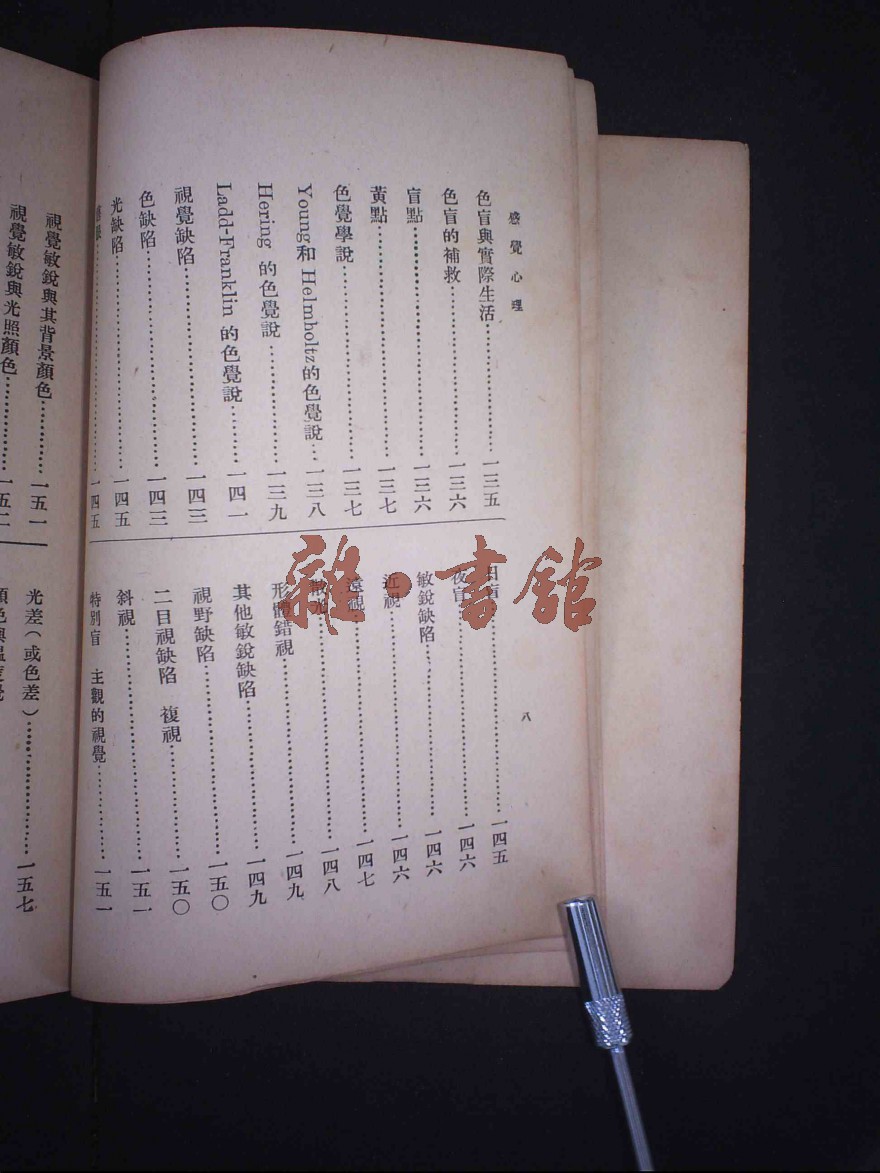 感覺心理
八
色盲與實際生活⋯⋯一三五
色盲的補救⋯⋯一三六
盲點⋯⋯一三六
黃點⋯⋯一三七
色覺學說⋯⋯一三七
Young和 Helmholtz的色覺說⋯⋯一三八
Hering 的色覺說⋯⋯一三九
Ladd-Franklin 的色覺說⋯⋯一四一
視覺缺陷⋯⋯一四三
色缺陷⋯⋯一四三
光缺陷⋯⋯一四五
⋯⋯一四五
日盲⋯⋯一四五
夜盲⋯⋯一四六
敏銳缺陷⋯⋯一四六
近視⋯⋯一四六
遠視⋯⋯一四七
散光⋯⋯一四八
形體錯視⋯⋯一四九
其他敏銳缺陷⋯⋯一四九
視野缺陷⋯⋯一五〇
二目視缺陷 複視⋯⋯一五〇
斜視⋯⋯一五一
特別盲 主觀的視覺⋯⋯一五一
視覺敏銳與其背景顏色⋯⋯一五一
視覺敏銳與光照顏色⋯⋯一五二
光差(或色差)⋯⋯一五七
雜·書館